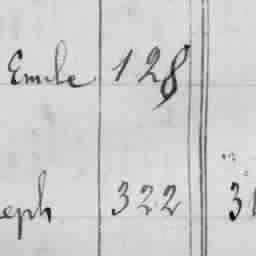 Emile 128
eph 322 31